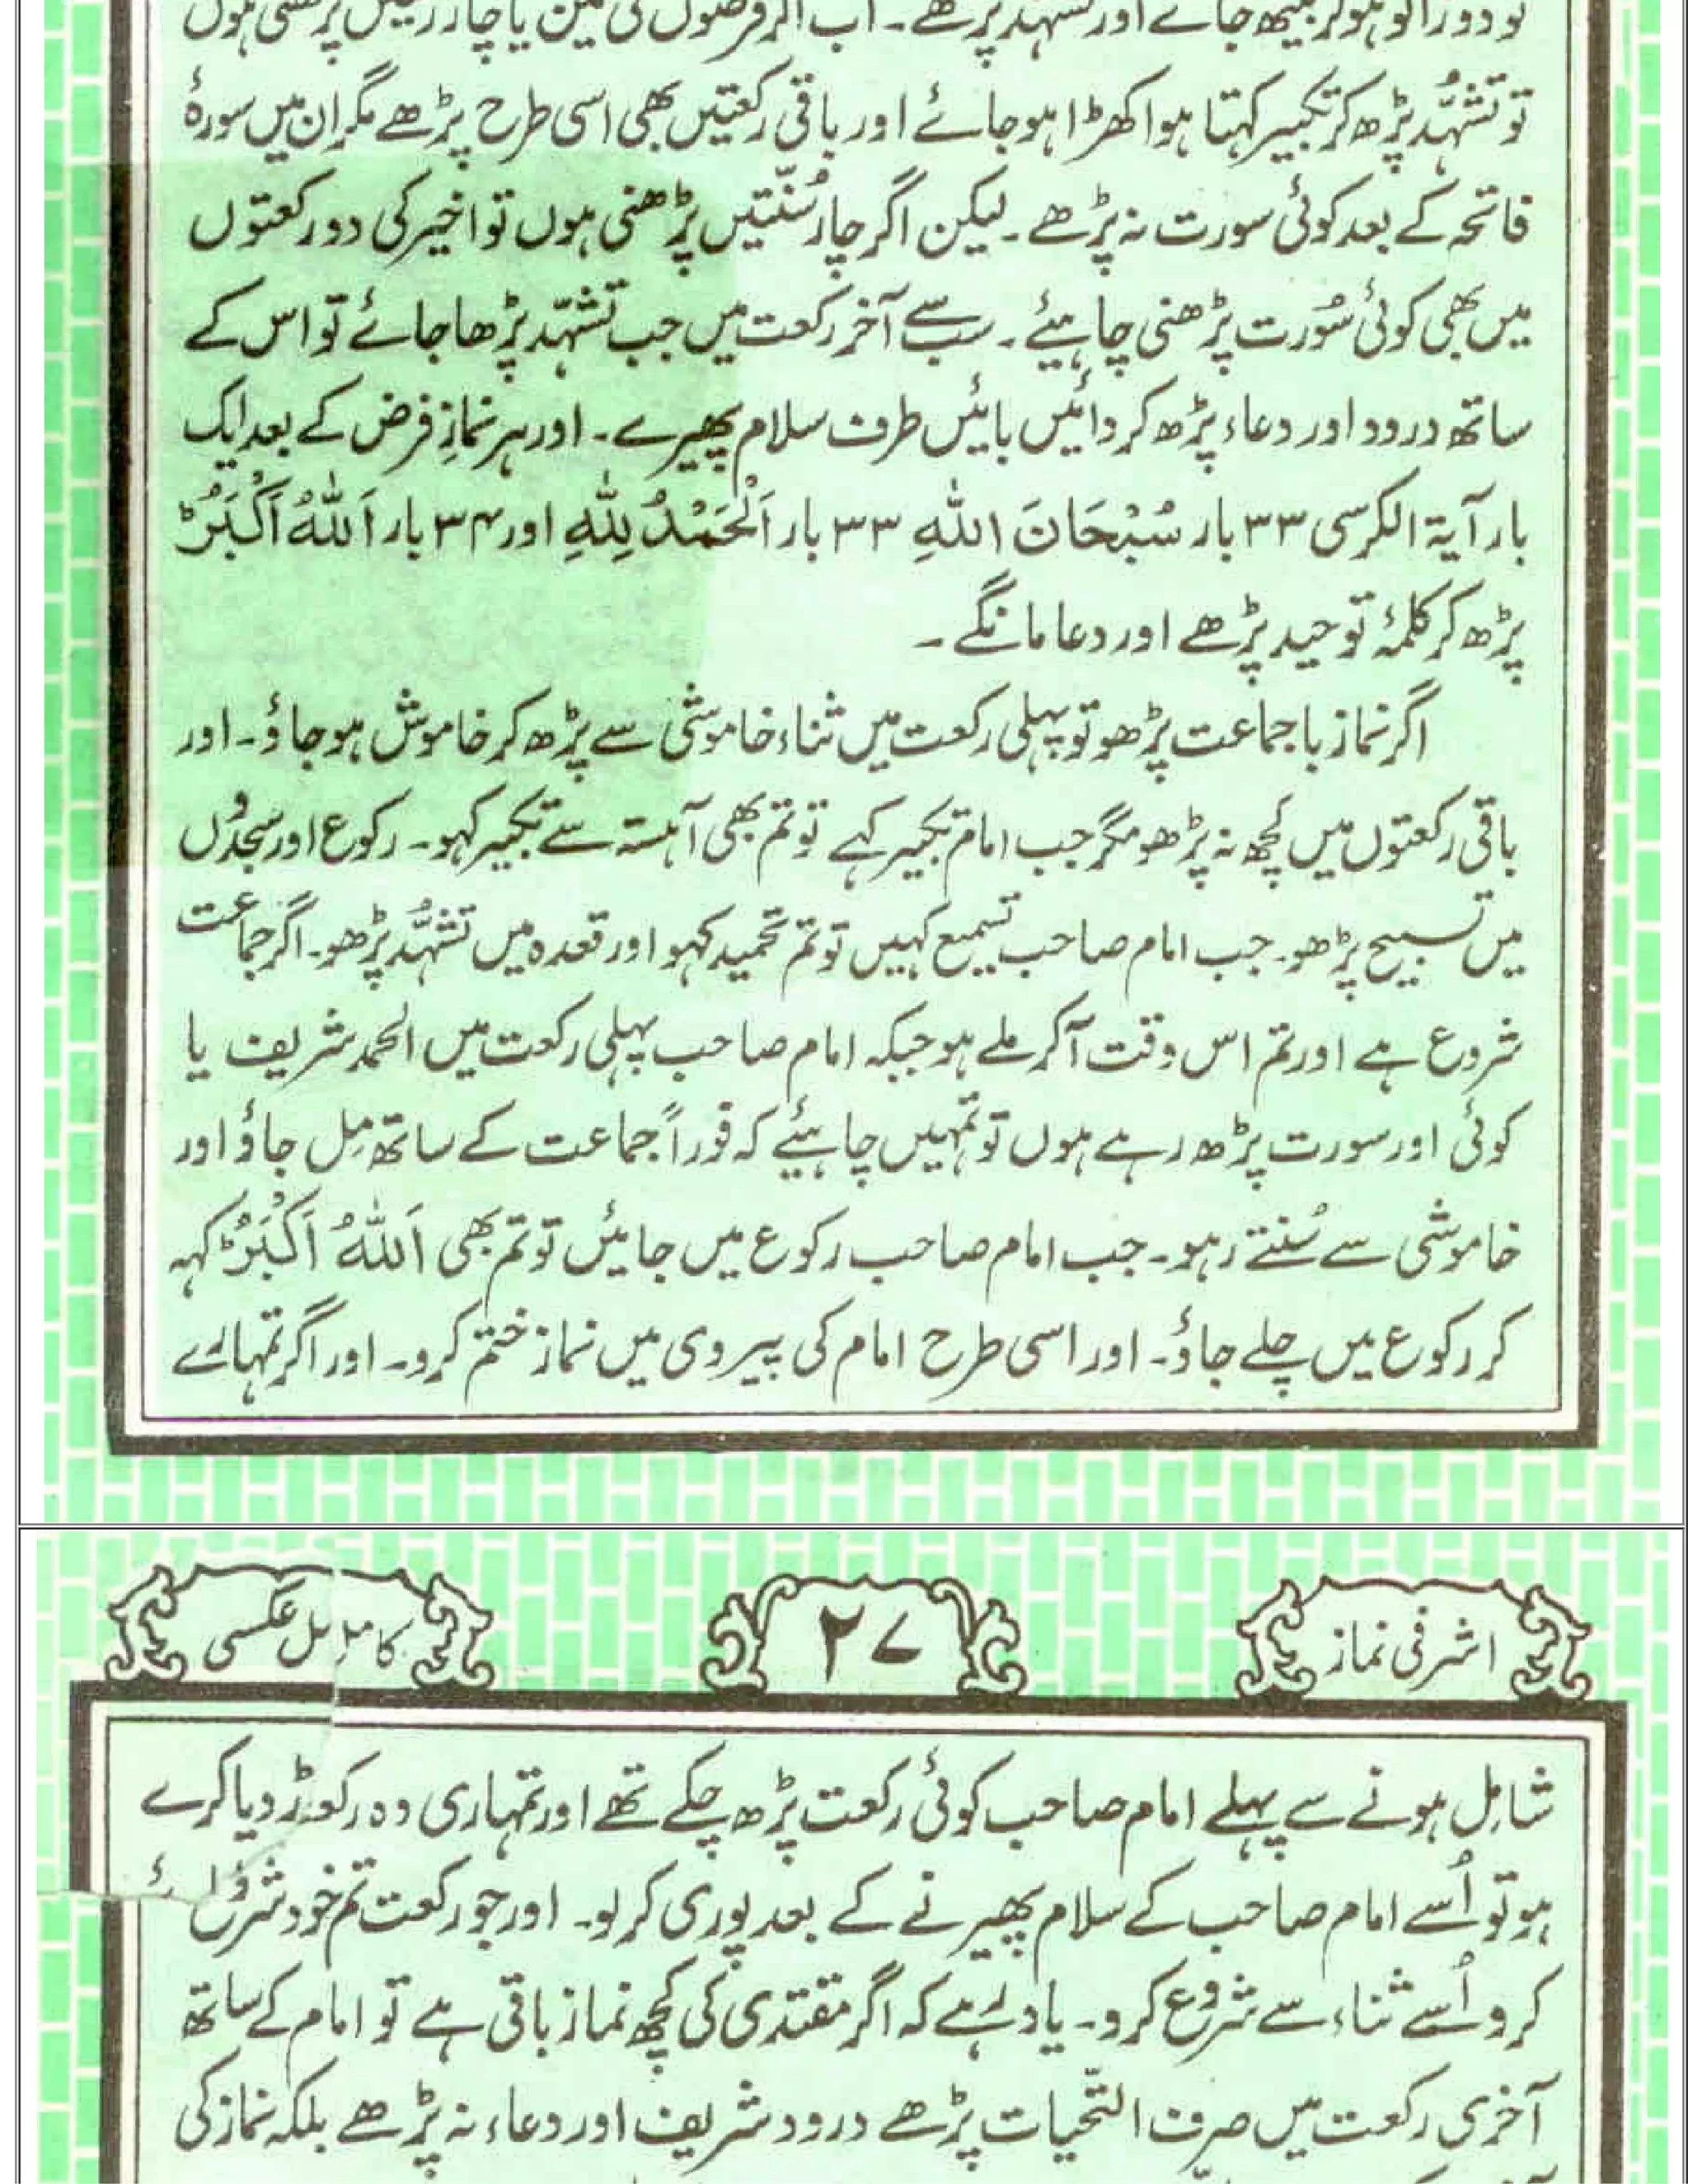 تو دوزانو ہو کر بیٹھ جائے اور تشہد پڑھے۔ اب اگر فرضوں کی تین یا چار رکعتیں پڑھنی ہوں
تو تشہّد پڑھ کر تکبیر کہتا ہوا کھڑا ہو جائے اور باقی رکعتیں بھی اسی طرح پڑھے مگر ان میں سورۂ
فاتحہ کے بعد کوئی سورت نہ پڑھے۔ لیکن اگر چار سُنّتیں پڑھنی ہوں تو اخیر کی دو رکعتوں
میں بھی کوئی سُورت پڑھنی چاہیئے۔ سب سے آخر رکعت میں جب تشہّد پڑھا جائے تو اس کے
ساتھ درود اور دعاء پڑھ کر دائیں بائیں طرف سلام پھیرے۔ اور ہر نمازِ فرض کے بعد ایک
بار آیۃ الکرسی ۳۳ بار سُبْحَانَ اللّٰهِ ۳۳ بار اَلْحَمْدُ لِلّٰهِ اور ۳۴ بار اَللّٰهُ اَكْبَرُ
پڑھ کر کلمۂ توحید پڑھے اور دعا مانگے۔
اگر نماز با جماعت پڑھو تو پہلی رکعت میں ثناء خاموشی سے پڑھ کر خاموش ہو جاؤ۔ اور
باقی رکعتوں میں کچھ نہ پڑھو مگر جب امام تکبیر کہے تو تم بھی آہستہ سے تکبیر کہو۔ رکوع اور سجدوں
میں تسبیح پڑھو۔ جب امام صاحب تسمیع کہیں تو تم تحمید کہو اور قعدہ میں تشہُّد پڑھو۔ اگر جماعت
شروع ہے اور تم اس وقت آکر ملے ہو جبکہ امام صاحب پہلی رکعت میں الحمد شریف یا
کوئی اور سورت پڑھ رہے ہوں تو تمہیں چاہیئے کہ فوراً جماعت کے ساتھ مِل جاؤ اور
خاموشی سے سُنتے رہو۔ جب امام صاحب رکوع میں جائیں تو تم بھی اَللّٰهُ اَكْبَرُ کہہ
کر رکوع میں چلے جاؤ۔ اور اسی طرح امام کی پیروی میں نماز ختم کرو۔ اور اگر تمہارے
اشرفی نماز ۲۷ کامل عکسی
شامِل ہونے سے پہلے امام صاحب کوئی رکعت پڑھ چکے تھے اور تمہاری وہ
ہو تو اُسے امام صاحب کے سلام پھیرنے کے بعد پوری کر لو۔ اور جو رکعت تم خود شروع
کرو اُسے ثناء سے شروع کرو۔ یاد رہے کہ اگر مقتدی کی کچھ نماز باقی ہے تو امام کے ساتھ
آخری رکعت میں صرف التّحیات پڑھے درود شریف اور دعاء نہ پڑھے بلکہ نماز کی